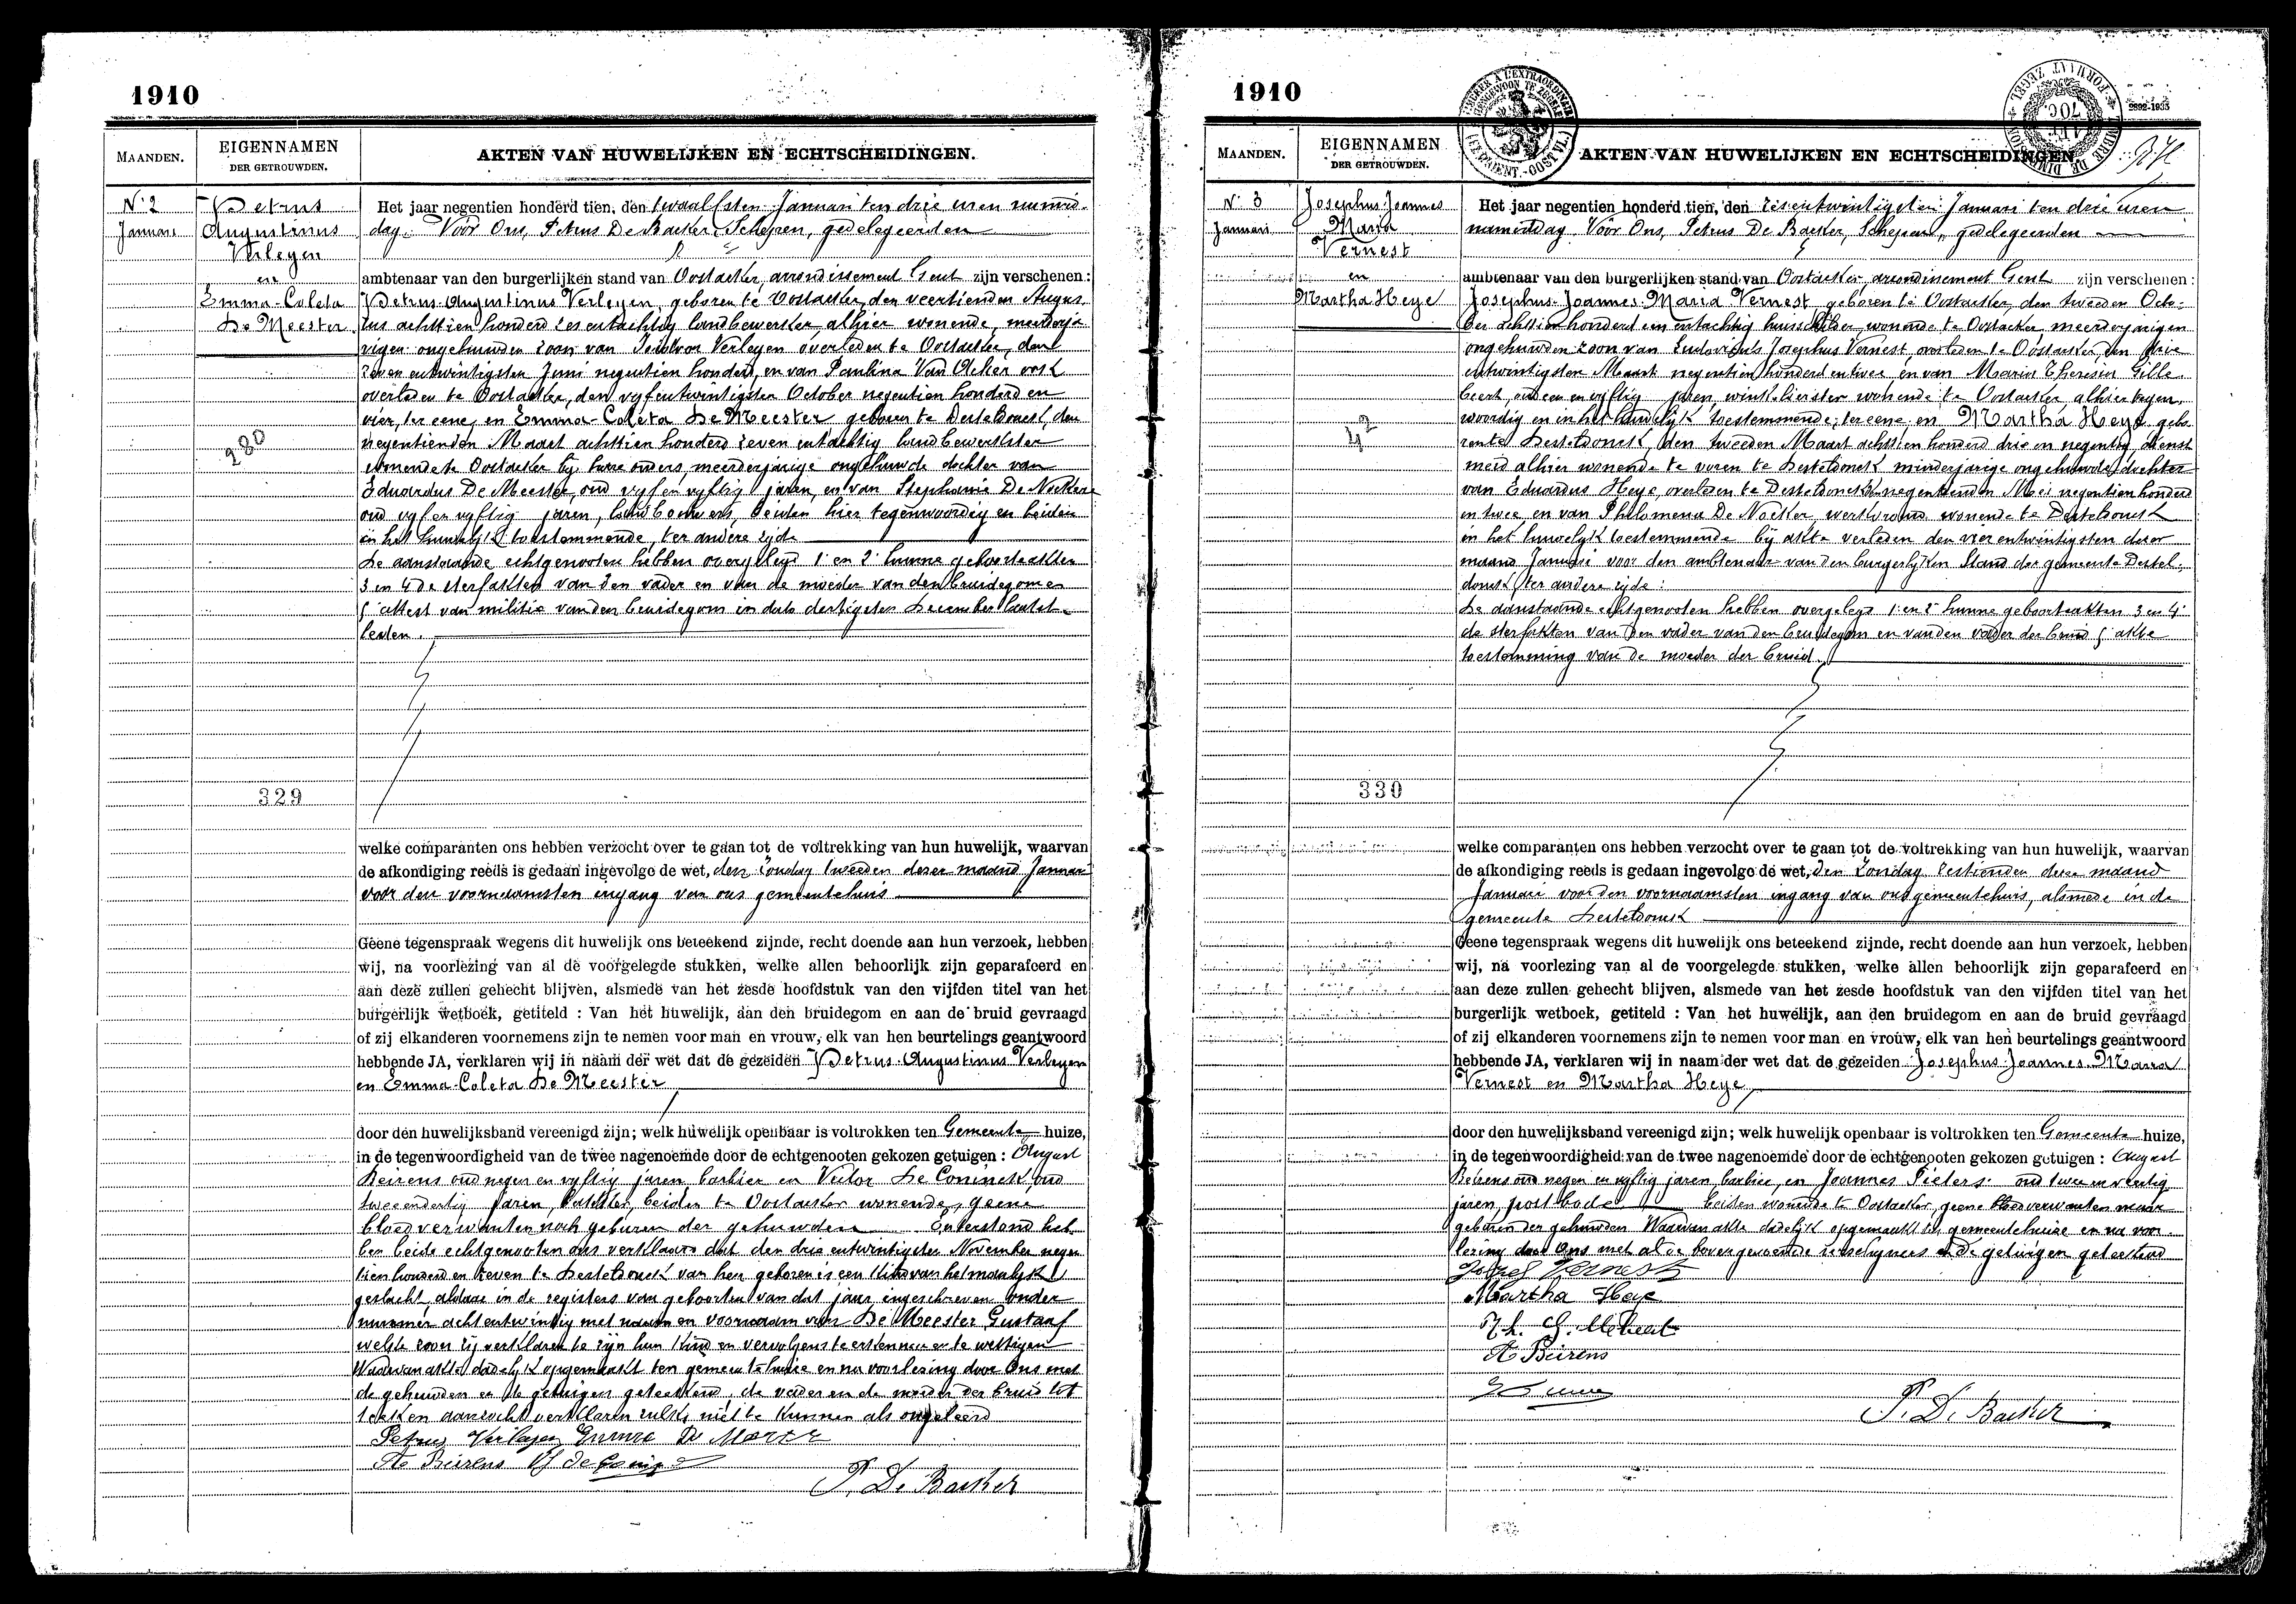 1910
MAANDEN.
EIGENNAMEN
DER GETROUWDEN.
AKTEN VAN HUWELIJKEN EN ECHTSCHEIDINGEN.
N° 2
Januari
Petrus
Augustinus
Verleyen
en
Emma-Coleta
De Meester
280
329
Het jaar negentien honderd tien, den twaalfsten Januari ten drie uren namid-
dag. Voor Ons, Petrus De Backer, Schepen, gedelegeerden
ambtenaar van den burgerlijken stand van Oostacker, arrondissement Gent zijn verschenen :
Petrus-Augustinus Verleyen, geboren te Oostacker, den veertienden Augus-
tus achttien honderd zes entachtig landbewerker, alhier wonende, meerderja-
rigen ongehuwden zoon van Verleyen overleden te Oostacker, den
zeven entwintigsten Juni negentien honderd, en van Paulina Van Acker ook
overleden te Oostacker, den vyfentwintigsten October negentien honderd en
vier, ter eene, en Emma-Coleta De Meester geboren te Desteldonck, den
negentienden Maart achttien honderd zeven entachtig landbewerkster
wonende te Oostacker by hare ouders, meerderjarige ongehuwde dochter van
Eduardus De Meester, oud vyf en vyftig jaren, en van Stephanie De Nockere
oud vyf en vyftig jaren, landbouwers, beiden hier tegenwoordig en beiden
in het huwelyk toestemmende, ter andere zijde
De aanstaande echtgenooten hebben overgelegd 1° en 2° hunne geboorteakten
3 en 4 de sterfakten van den vader en van de moeder van den bruidegom en
5° attest van militie van den bruidegom in dato dertigsten December laatst-
leden.
welke comparanten ons hebben verzocht over te gaan tot de voltrekking van hun huwelijk, waarvan
de afkondiging reeds is gedaan ingevolge de wet, den Zondag tweeden dezer maand Januari
voor den voornaamsten ingang van ons gemeentehuis
Geene tegenspraak wegens dit huwelijk ons beteekend zijnde, recht doende aan hun verzoek, hebben
wij, na voorlezing van al de voorgelegde stukken, welke allen behoorlijk zijn geparafeerd en
aan deze zullen gehecht blijven, alsmede van het zesde hoofdstuk van den vijfden titel van het
burgerlijk wetboek, getiteld : Van het huwelijk, aan den bruidegom en aan de bruid gevraagd
of zij elkanderen voornemens zijn te nemen voor man en vrouw, elk van hen beurtelings geantwoord
hebbende JA, verklaren wij in naam der wet dat de gezeiden Petrus-Augustinus Verleyen
en Emma-Coleta De Meester
door den huwelijksband vereenigd zijn; welk huwelijk openbaar is voltrokken ten Gemeente huize,
in de tegenwoordigheid van de twee nagenoemde door de echtgenooten gekozen getuigen : August
Beirens oud negen en vyftig jaren barbier en Victor De Coninck, oud
tweeendertig jaren, beiden te Oostacker wonende, geene
bloedverwanten noch geburen der gehuwden. Onderstond heb-
ben beide echtgenooten ons verklaard dat den drie entwintigsten November negen
tien honderd en zeven te Desteldonck van hen geboren is een kind van het manlyk
geslacht, aldaar in de registers van geboorten van dat jaar ingeschreven onder
nummer acht entwintig met naam en voornaam van De Meester Gustaaf
welke zoon zij verklaren te zijn hun kind en vervolgens te erkennen en te wettigen
Waarvan akte dadelyk opgemaakt ten gemeentehuize en na voorlezing door Ons met
de gehuwden en de getuigen geteekend, de vader en de moeder der bruid tot
teeken aanzocht verklaren zulks niet te kunnen als ongeleerd
Petrus Verleyen Emma De Meester
Ae Beirens
P. De Backer
1910
MAANDEN.
EIGENNAMEN
DER GETROUWDEN.
AKTEN VAN HUWELIJKEN EN ECHTSCHEIDINGEN.
N° 3
Januari
Josephus-Joannes
Maria
Vernest
en
Martha Heye
42
330
Het jaar negentien honderd tien, den zesentwintigsten Januari ten drie uren
namiddag. Voor Ons, Petrus De Backer, Schepen, gedelegeerden
ambtenaar van den burgerlijken stand van Oostacker, arrondissement Gent zijn verschenen :
Josephus-Joannes-Maria Vernest geboren te Oostacker, den tweeden Octo-
ber achttien honderd een entachtig huisschilder, wonende te Oostacker meerderjarigen
ongehuwden zoon van Ludovicus Josephus Vernest, overleden te Oostacker, den drie
entwintigsten Maart negentien honderd en twee, en van Maria Theresia Gille-
beert, oud een en vyftig jaren, winkelierster wonende te Oostacker alhier tegen-
woordig en in het huwelyk toestemmende, ter eene, en Martha Heye gebo-
ren te Desteldonck, den tweeden Maart achttien honderd drie en negentig, dienst
meid alhier wonende te voren te Desteldonck minderjarige ongehuwde dochter
van Eduardus Heye, overleden te Desteldonck den negentienden Mei negentien honderd
en twee en van Philomena De Nocker, werkvrouw wonende te Desteldonck
in het huwelyk toestemmende by akte verleden den vier entwintigsten dezer
maand Januari voor den ambtenaar van den burgerlyken stand der gemeente Destel-
donck, ter andere zijde :
De aanstaande echtgenooten hebben overgelegd 1° en 2° hunne geboorteakten 3 en 4°
de sterfakten van den vader van den bruidegom en van den vader der bruid 5° akte
toestemming van de moeder der bruid.
welke comparanten ons hebben verzocht over te gaan tot de voltrekking van hun huwelijk, waarvan
de afkondiging reeds is gedaan ingevolge de wet, den Zondag zestienden dezer maand
Januari voor den voornaamsten ingang van ons gemeentehuis, alsmede in de
gemeente Desteldonck
Geene tegenspraak wegens dit huwelijk ons beteekend zijnde, recht doende aan hun verzoek, hebben
wij, na voorlezing van al de voorgelegde stukken, welke allen behoorlijk zijn geparafeerd en
aan deze zullen gehecht blijven, alsmede van het zesde hoofdstuk van den vijfden titel van het
burgerlijk wetboek, getiteld : Van het huwelijk, aan den bruidegom en aan de bruid gevraagd
of zij elkanderen voornemens zijn te nemen voor man en vrouw, elk van hen beurtelings geantwoord
hebbende JA, verklaren wij in naam der wet dat de gezeiden Josephus-Joannes-Maria
Vernest en Martha Heye
door den huwelijksband vereenigd zijn; welk huwelijk openbaar is voltrokken ten Gemeente huize,
in de tegenwoordigheid van de twee nagenoemde door de echtgenooten gekozen getuigen : August
Beirens oud negen en vyftig jaren, barbier, en Joannes Pieters oud twee en veertig
jaren, postbode beiden wonende te Oostacker, geene bloedverwanten maar
geburen der gehuwden. Waarvan akte dadelyk opgemaakt ten gemeentehuize en na voor-
lezing door Ons met al de bovengenoemde verschyners en de getuigen geteekend
Jozef Vernest
Martha Heye
Ae Beirens
P. De Backer